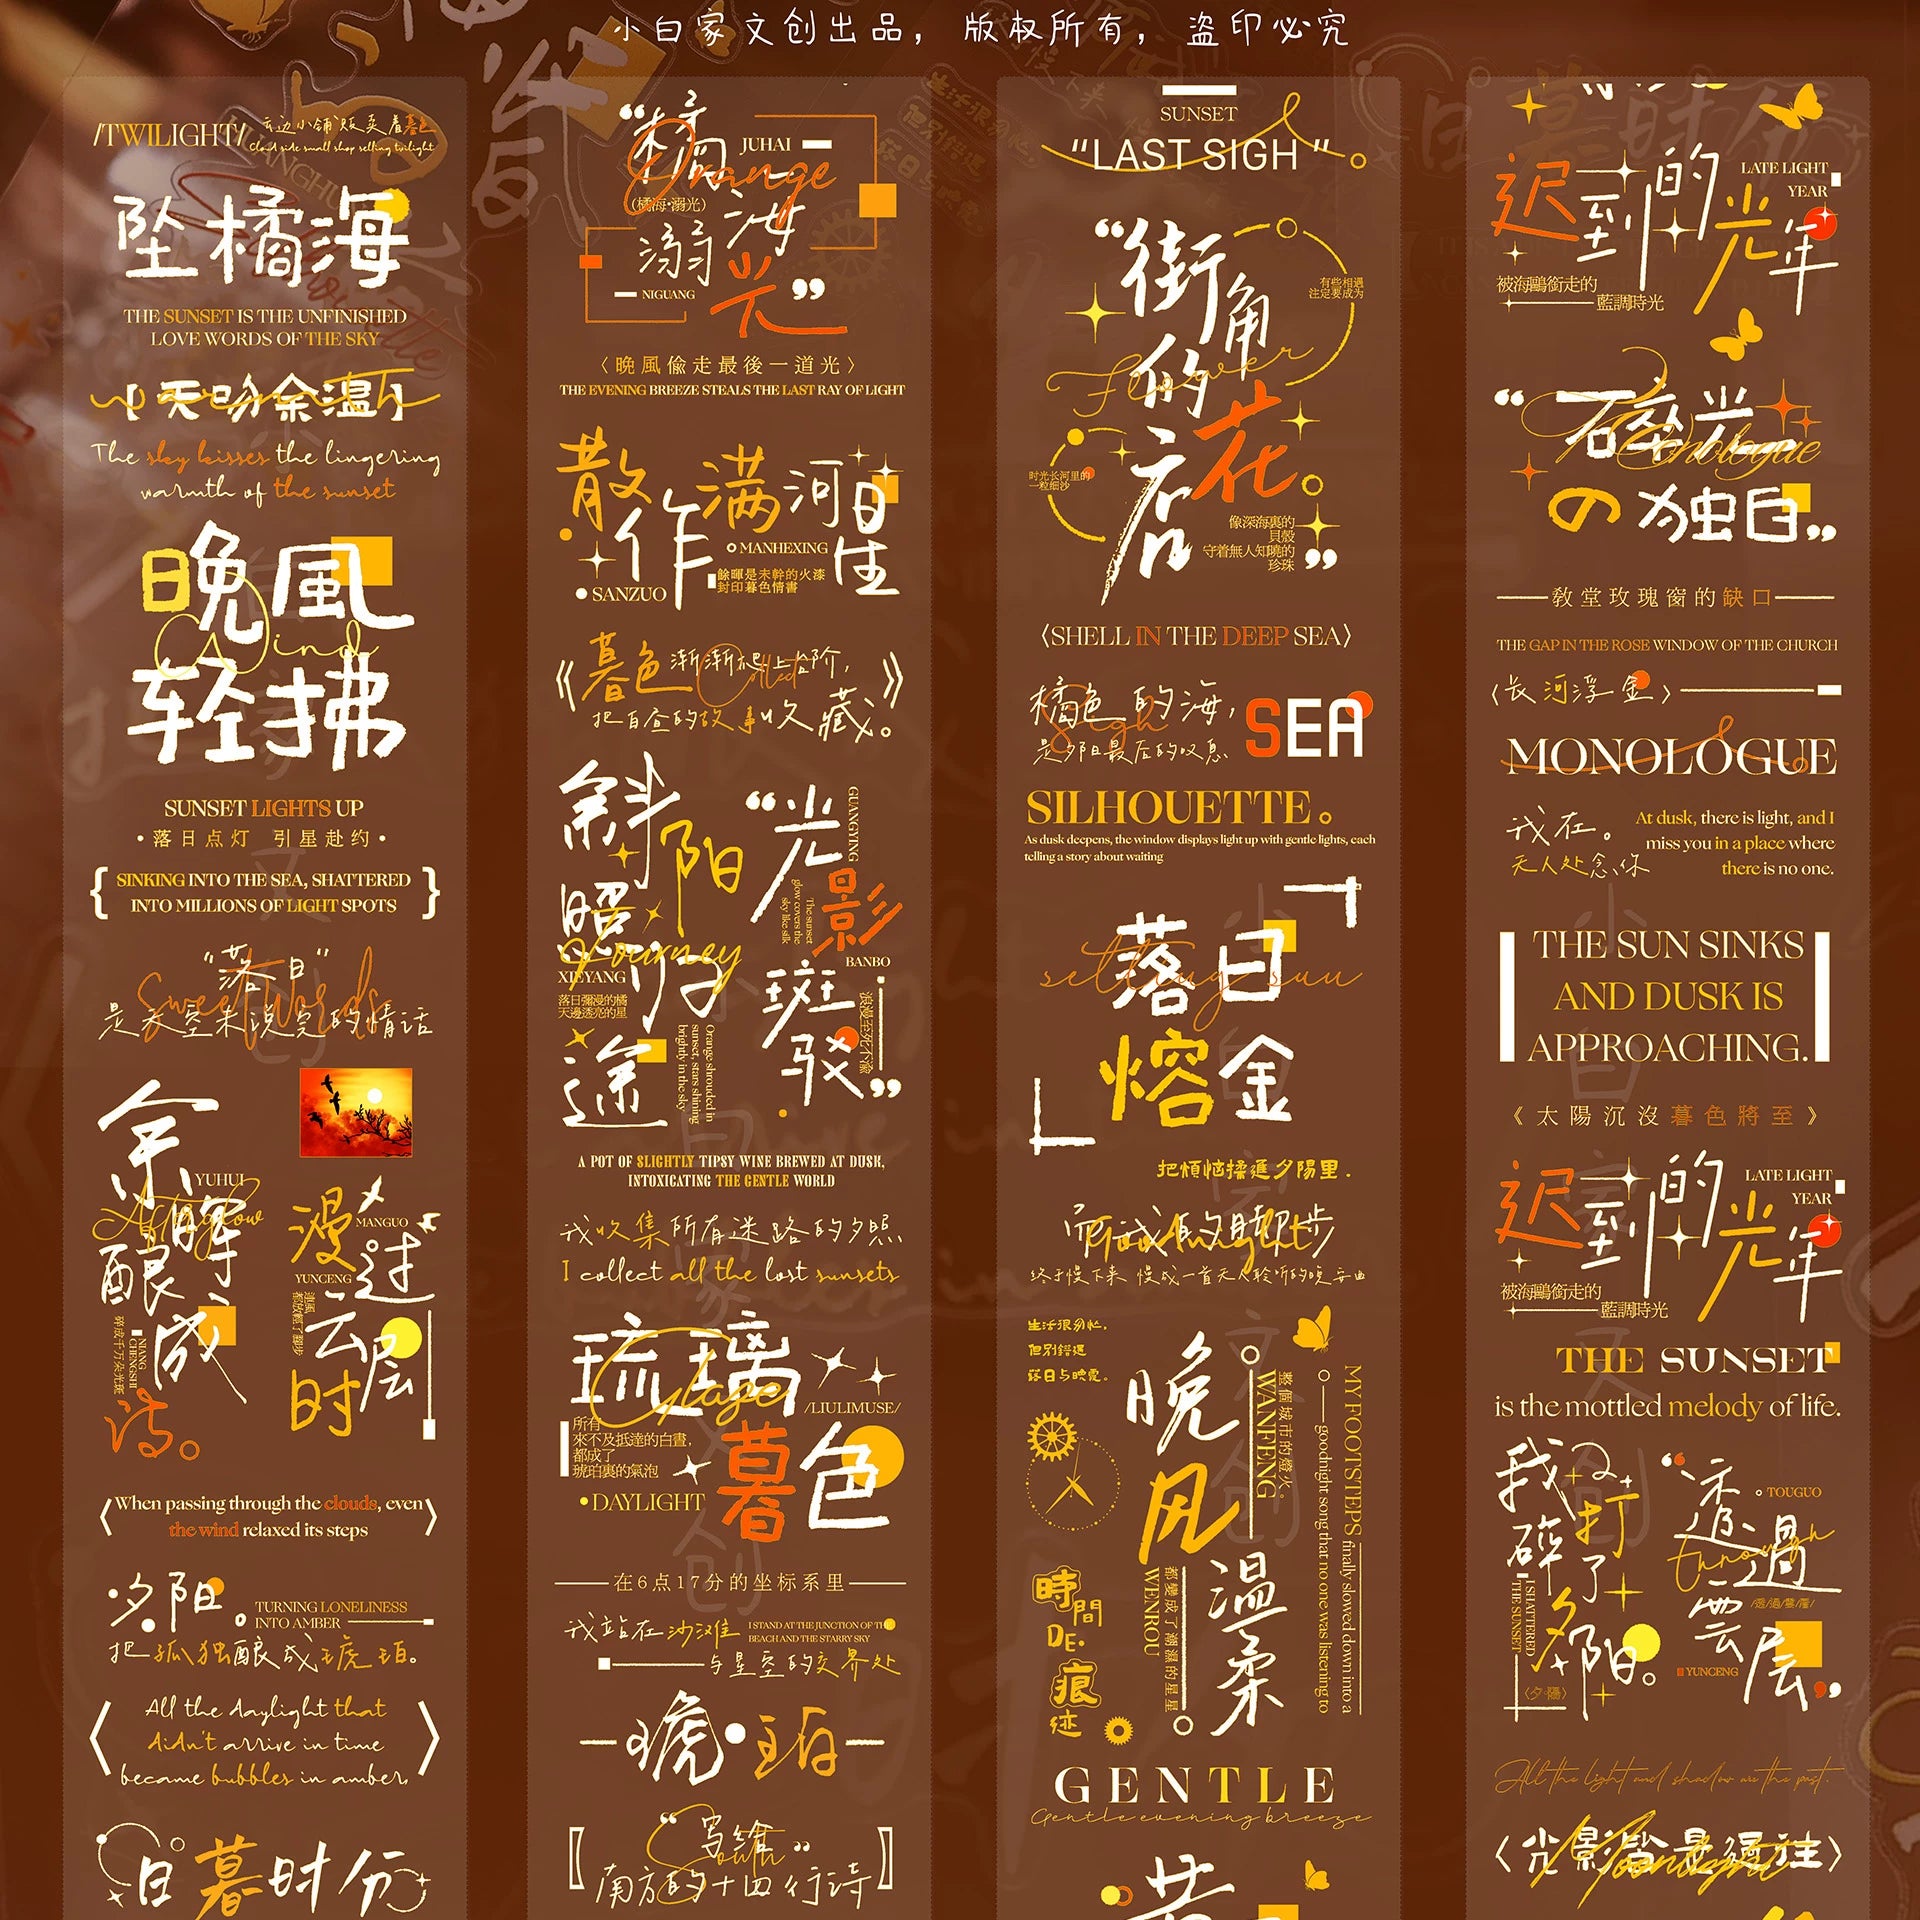 小白家文创出品， 版权所有， 盗印必究
/TWILIGHT/
云边小铺贩卖着暮色
Cloud side small shop selling twilight
坠橘海
THE SUNSET IS THE UNFINISHED
LOVE WORDS OF THE SKY
【天吻余温】
warmth
The sky kisses the lingering
warmth of the sunset
晚風
Wind
轻拂
SUNSET LIGHTS UP
·落日点灯 引星赴约·
{ SINKING INTO THE SEA, SHATTERED
INTO MILLIONS OF LIGHT SPOTS }
“落日”
Sweet Words
是天空未说完的情话
余晖
YUHUI
Afterglow
酿成
NIANG
CHENGSHI
碎成千万朵光斑
诗。
漫过
MANGUO
YUNCENG
連風
都放輕了腳步
云层
时
〈When passing through the clouds, even
the wind relaxed its steps〉
夕阳。
TURNING LONELINESS
INTO AMBER
把孤独酿成琥珀。
〈All the daylight that
didn't arrive in time
became bubbles in amber,〉
日暮时分
“橘海
JUHAI
Orange
(橘海·溺光)
溺光”
NIGUANG
〈晚風偷走最後一道光〉
THE EVENING BREEZE STEALS THE LAST RAY OF LIGHT
散作满河星
MANHEXING
SANZUO
餘暉是未幹的火漆
封印暮色情書
《暮色渐渐爬上台阶，
Collect
把白昼的故事收藏。》
斜阳
照
Journey
XIEYANG
归途
落日彌漫的橘
天邊透亮的星
Orange shrouded in
sunset, stars shining
brightly in the sky
“光影
GUANGYING
The sunset
glow covers the
sky like silk
BANBO
斑驳”
浪漫至死不渝
A POT OF SLIGHTLY TIPSY WINE BREWED AT DUSK,
INTOXICATING THE GENTLE WORLD
我收集所有迷路的夕照
I collect all the lost sunsets
琉璃
Glaze
/LIULIMUSE/
所有
來不及抵達的白晝，
都成了
琥珀裏的氣泡
暮色
DAYLIGHT
在6点17分的坐标系里
我站在沙滩
I STAND AT THE JUNCTION OF THE
BEACH AND THE STARRY SKY
与星空的交界处
琥·珀
“写给”
South
南方的十四行诗
SUNSET
“LAST SIGH”
“街角
有些相遇
注定要成为
的
Flower
花
店”
时光长河里的
一粒细沙
像深海裏的
貝殼
守着無人知曉的
珍珠
〈SHELL IN THE DEEP SEA〉
橘色的海，
Sigh
是夕阳最后的叹息
SEA
SILHOUETTE。
As dusk deepens, the window displays light up with gentle lights, each
telling a story about waiting
落日
setting sun
熔金
把煩惱揉進夕陽里.
而我的脚步
Goodnight
终于慢下来 慢成一首无人聆听的晚安曲
生活很匆忙，
但别錯過
落日与晚霞。
晚风
WANFENG
整個城市的燈火。
温柔
WENROU
都變成了潮濕的星星
MY FOOTSTEPS finally slowed down into a
goodnight song that no one was listening to
時間
DE·
痕
迹
GENTLE
Gentle evening breeze
迟到的
LATE LIGHT
YEAR
光年
被海鷗銜走的
藍調時光
“碎光
Monologue
の独白”
敎堂玫瑰窗的缺口
THE GAP IN THE ROSE WINDOW OF THE CHURCH
〈长河浮金〉
MONOLOGUE
我在。
无人处念你
At dusk, there is light, and I
miss you in a place where
there is no one.
THE SUN SINKS
AND DUSK IS
APPROACHING.
《太陽沉沒暮色將至》
迟到的
LATE LIGHT
YEAR
光年
被海鷗銜走的
藍調時光
THE SUNSET
is the mottled melody of life.
我打
碎了
夕阳。
I SHATTERED
THE SUNSET
〈夕·陽〉
“透過
TOUGUO
Through
/透/過/雲/層/
雲层”
YUNCENG
All the light and shadow are the past.
〈光影皆是过往〉